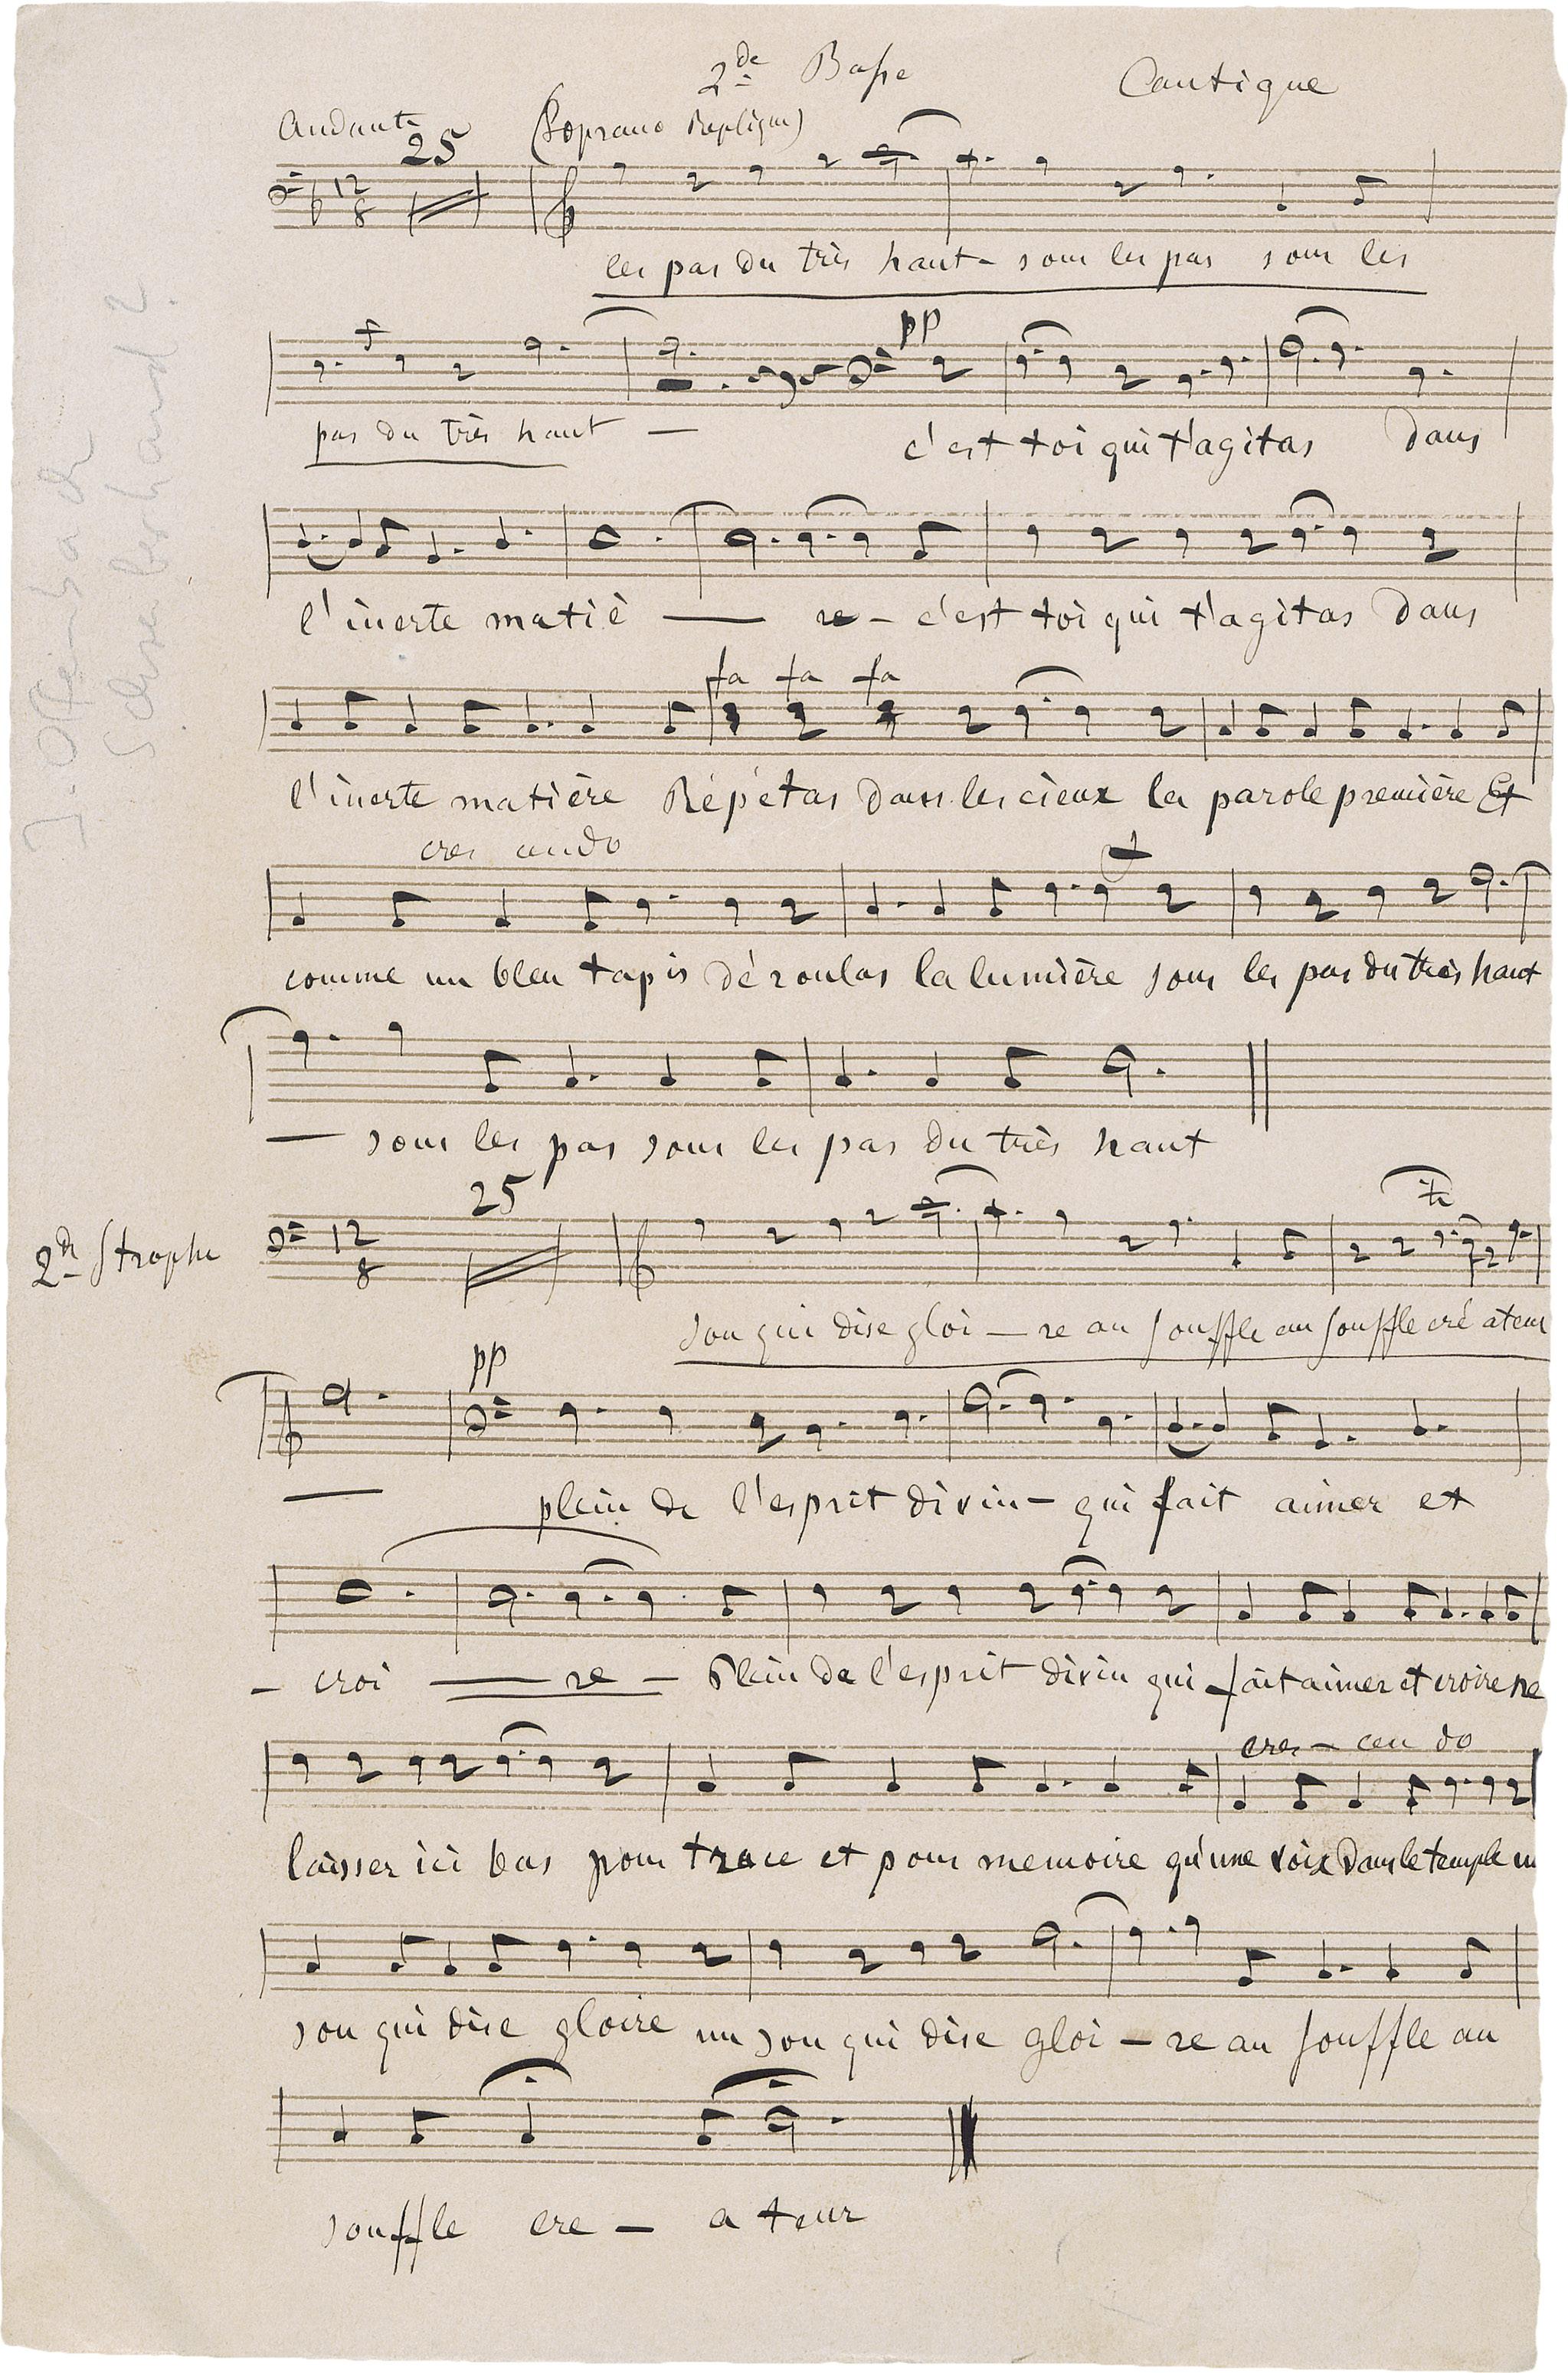 2de Basse Cantique
Andante 25 (Soprano Replique)
12 8
les pas du très haut - sous les pas sous les
pp
pas du très haut — c'est toi qui t'agitas dans
l'inerte matiè — re - c'est toi qui t'agitas dans
fa fa fa
l'inerte matière Répétas dans les cieux la parole première Et
cres cendo
comme un bleu tapis déroulas la lumière sous les pas du très haut
— sous les pas sous les pas du très haut
2de Strophe 12 8 25
son qui dise gloi — re au souffle au souffle cré ateur
pp
— plein de l'esprit divin - qui fait aimer et
- croi — re - Plein de l'esprit divin qui fait aimer et croire ne
cres - cen do
laisser ici bas pour trace et pour memoire qu'une voix dans le temple un
son qui dise gloire un son qui dise gloi - re au souffle au
souffle cre - a teur
J. Offenbach